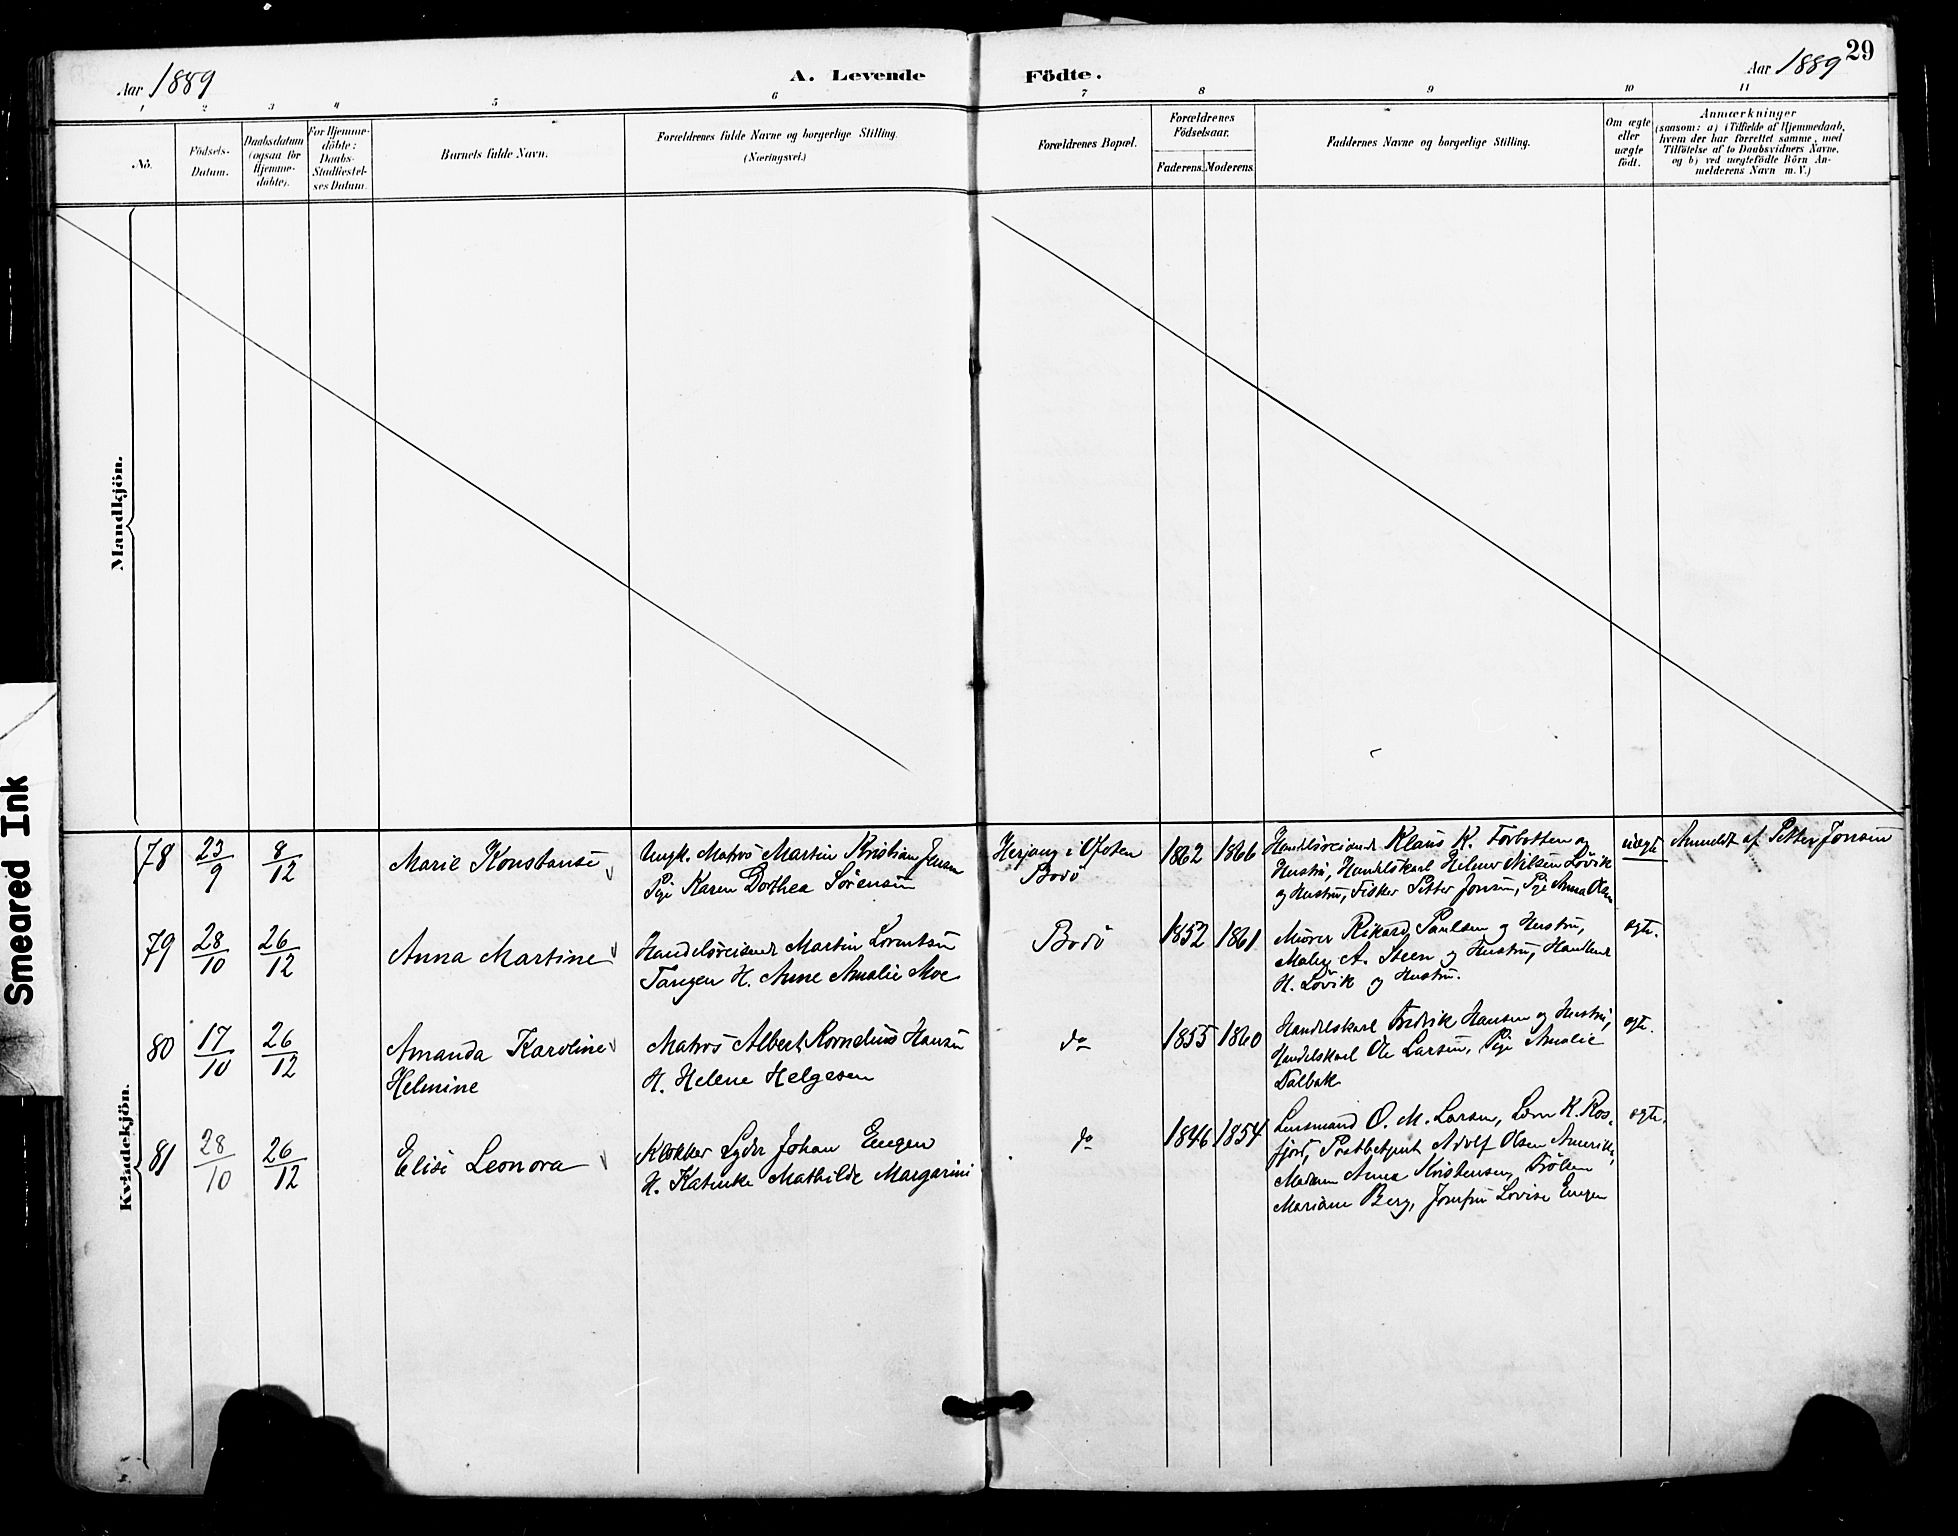 29
Aar 1889
A. Levende Födte.
Aar 1889
1 2 3 4 5 6 7 8 9 10 11
No.
Födsels-
Datum.
Daabsdatum
(ogsaa for
Hjemme-
döbte).
For Hjemme-
döbte:
Daabs-
Stadfæstel-
ses Datum.
Barnets fulde Navn.
Forældrenes fulde Navne og borgerlige Stilling.
(Næringsvei.)
Forældrenes Bopæl.
Forældrenes
Födselsaar.
Faderens. Moderens.
Faddernes Navne og borgerlige Stilling.
Om ægte
eller
uægte
födt.
Anmærkninger
(saasom: a) i Tilfælde af Hjemmedaab,
hvem der har forrettet samme, med
Tilföielse af to Daabsvidners Navne,
og b) ved uegtefödte Börn An-
melderens Navn m.V.)
Mandkjön.
Kvindekjön.
78 23/9 8/12 Marie Konstanse
Ungk. Matros Martin Kristian Jensen
Pige Karen Dorthea Sörensen
Herjang i Ofoten
Bodö
1862 1866
Handelsreisende Klaus K. Forbotten og
Hustru, Handelskarl Helmer Nilsen Lövik
og Hustru, Fisker Petter Jonsen, Pge Anna Olsen
uægte
Anmeldt af Petter Jonsen
79 28/10 26/12 Anna Martine
Handelsreisende Martin Lorentsen
Tangen H. Anne Amalie Moe
Bodö
1852 1861
Murer Rikard Paulsen og Hustru,
Maler A. Steen og Hustru, Handlende
H. Lövik og Hustru.
egte.
80 17/10 26/12 Amanda Karoline
Helmine
Matros Albert Kornelius Hansen
H. Helene Helgesen
do
1855 1860
Handelskarl Fredrik Hansen og Hustru,
Handelskarl Ole Larsen, Pige Amalie
Dalbak
egte.
81 28/10 26/12 Elise Leonora
Klokker Lyder Johan Engen
H. Katinka Mathilde Margarini
do
1846 1854
Lensmand O. M. Larsen, K. Ros-
fjord, Postbetjent Adolf Olsen
Madam Anna Kristensen, Fröken
Mariane Berg, Jomfru Lovise Engen
egte.
Smeared Ink